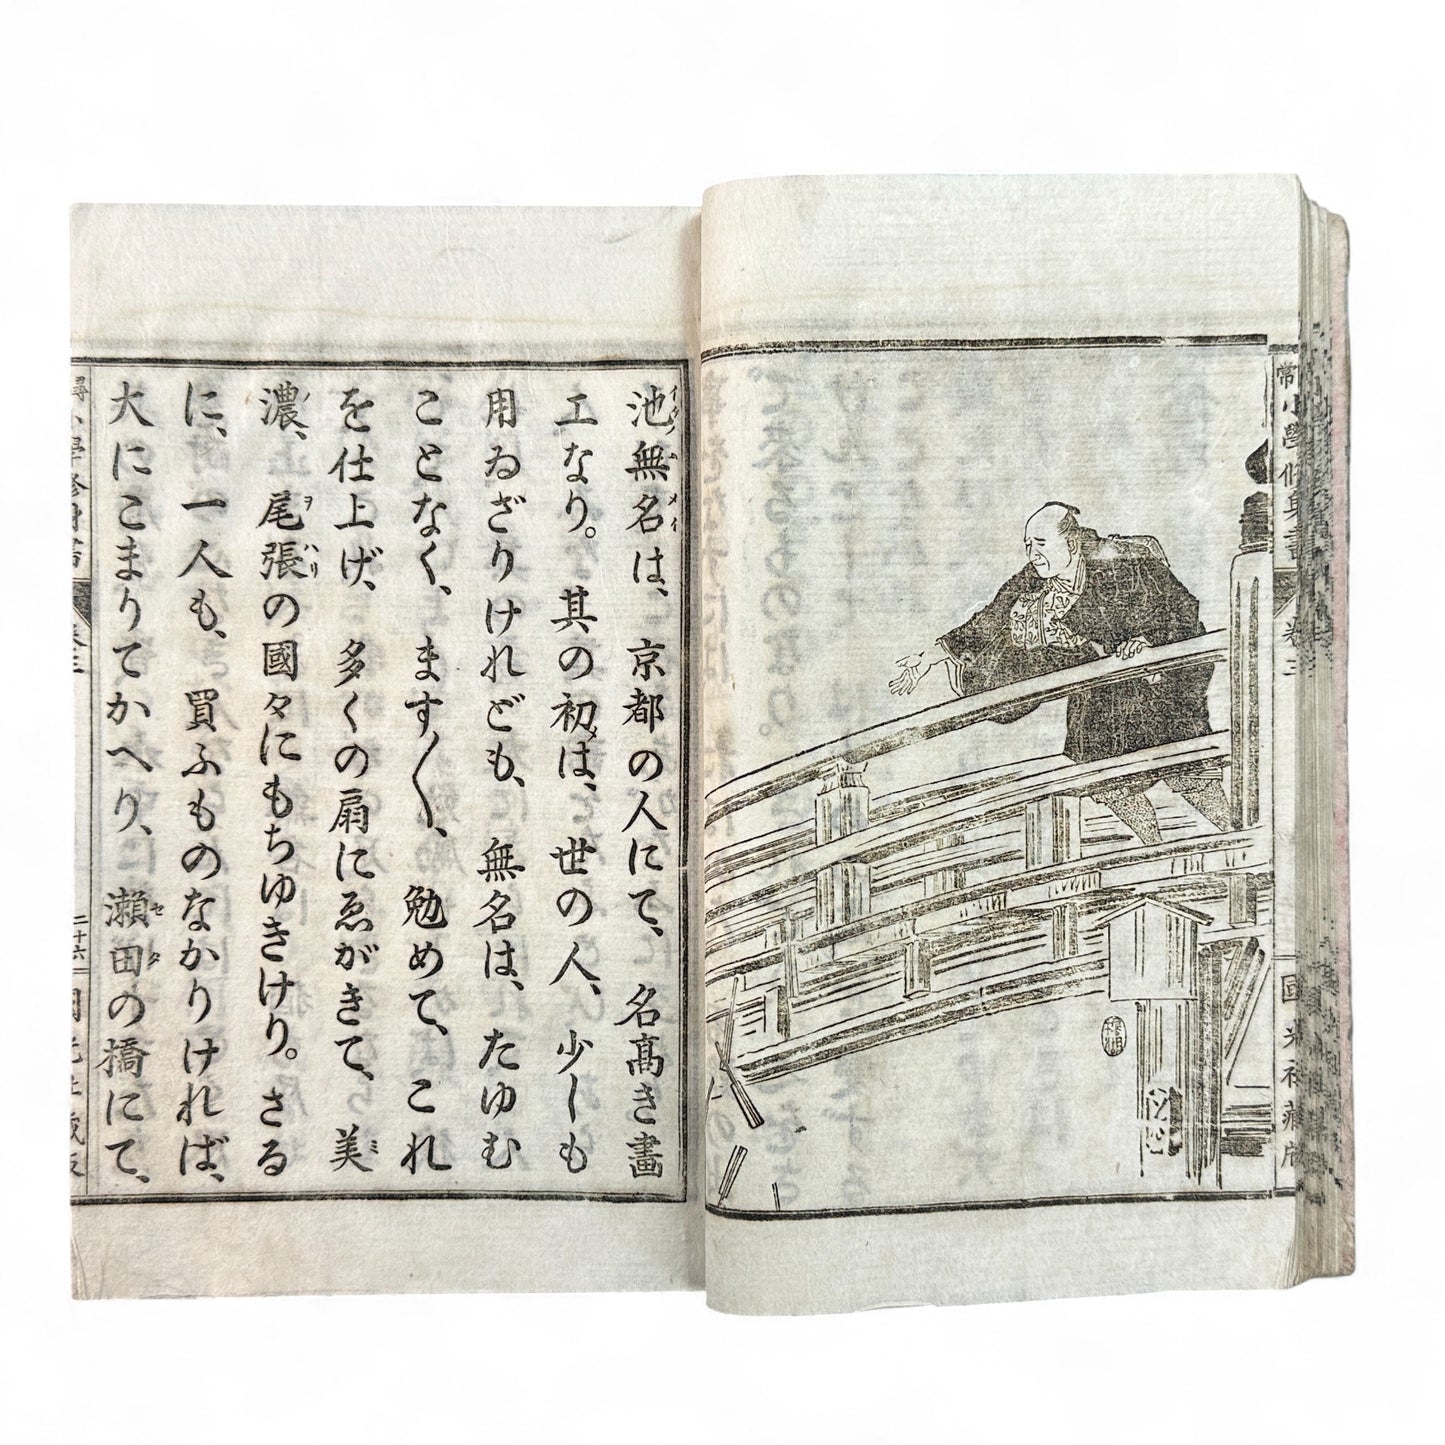 常小學修身書
卷三
國光社藏版
池無名は、京都の人にて、名高き畫
工なり。其の初は、世の人、少しも
用ゐざりけれども、無名は、たゆむ
ことなく、ます〱、勉めて、これ
を仕上げ、多くの扇にゑがきて、美
濃、尾張の國々にもちゆきけり。さる
に、一人も、買ふもののなかりければ、
大にこまりてかへり、瀬田の橋にて、
二十六